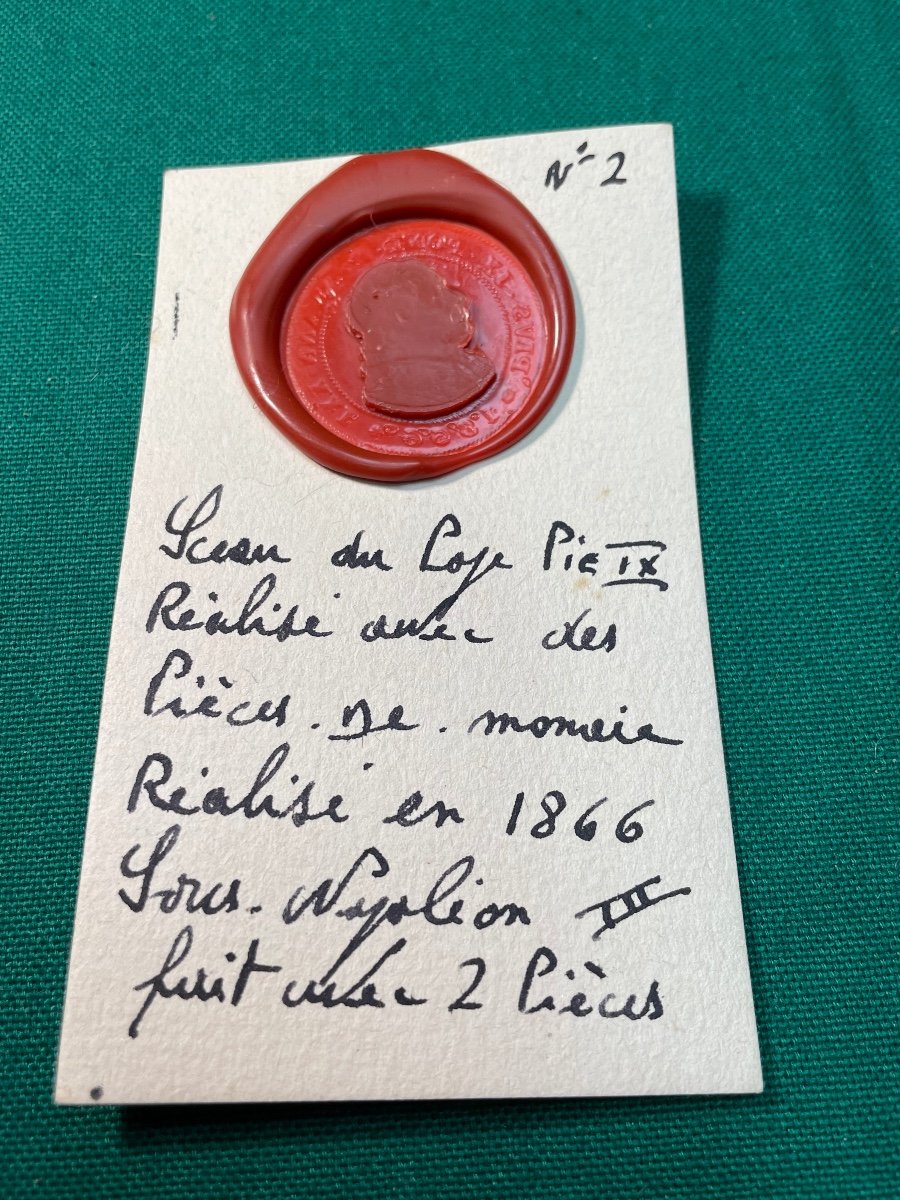 N° 2
Sceau du Pape Pie IX
Réalisé avec des
Pièces. De. monaie
Réalisé en 1866
Sous. Napoléon III
fait avec 2 Pièces